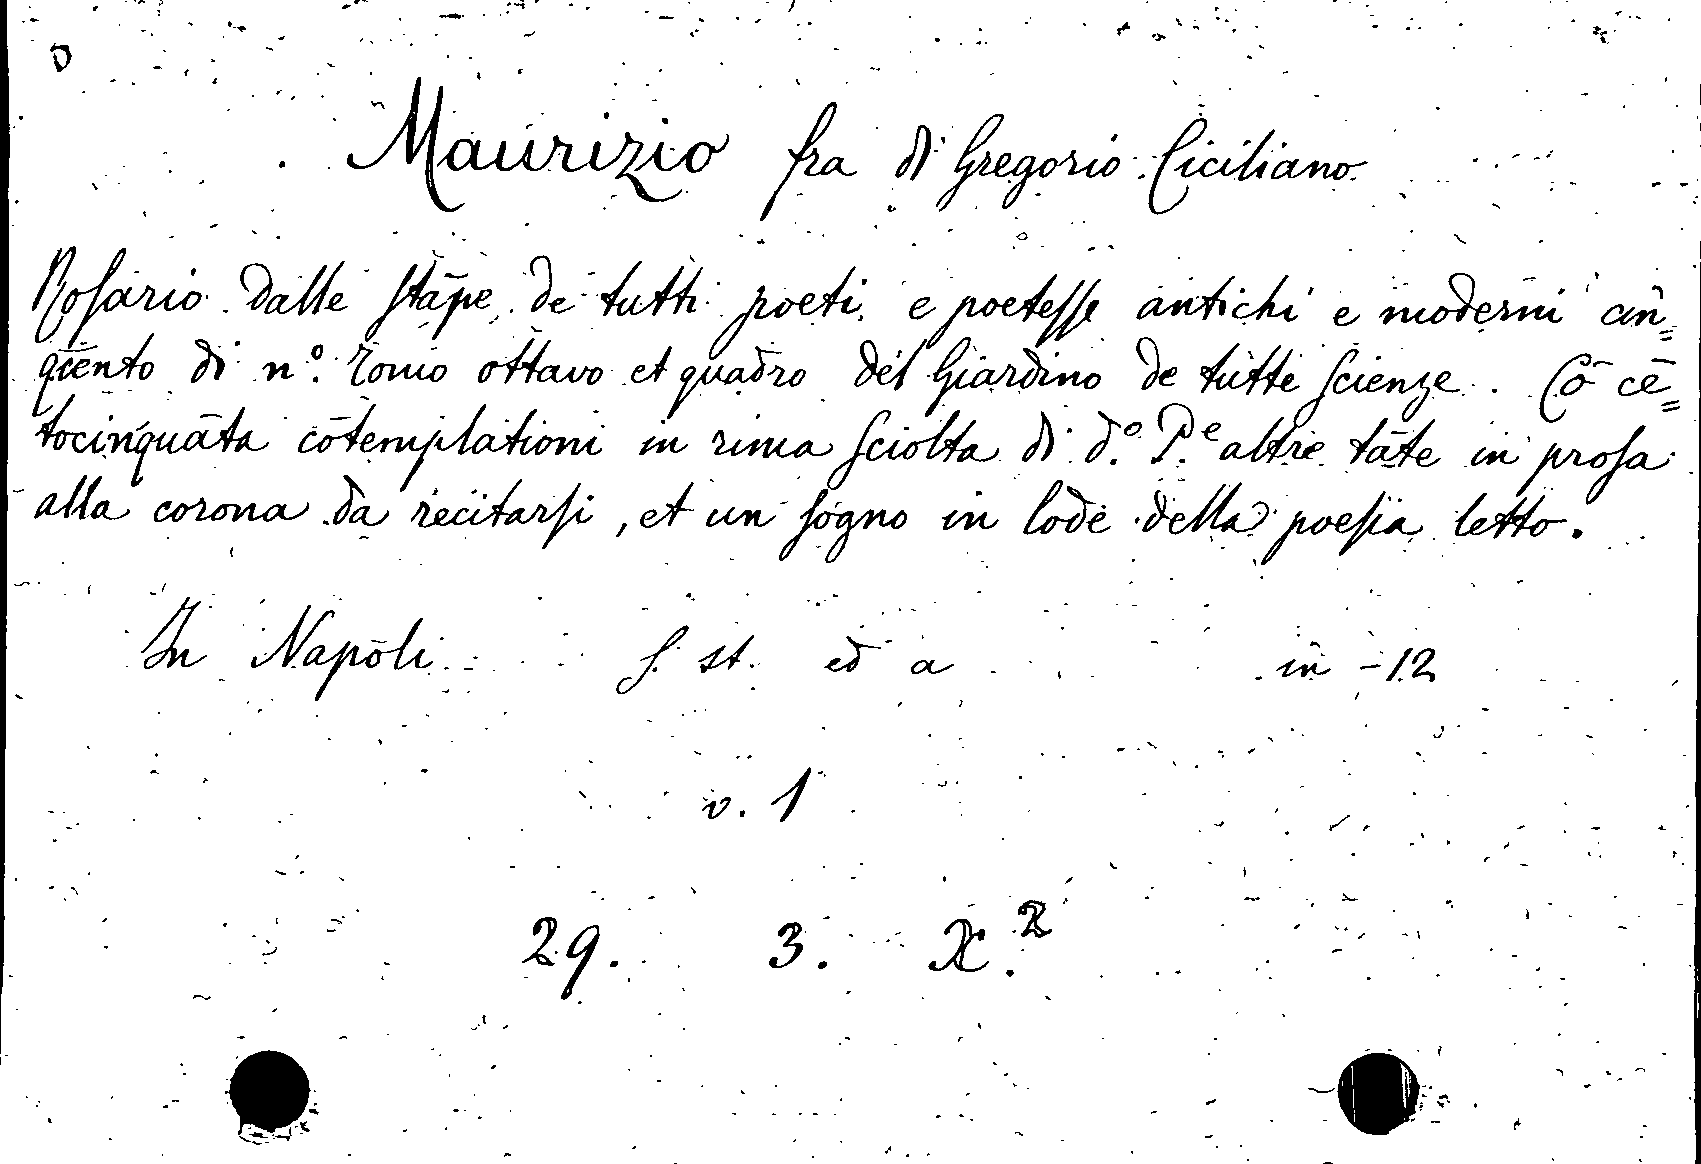 Maurizio fra di Gregorio Ciciliano
Rosario dalle stāpe de tutti poeti e poetesse antichi e moderni cin=
qcento di n.º Tomo ottavo et quadro del Giardino de tutte scienze. Cō cē=
tocinquāta cōtemplationi in rima sciolta di d.º P.e altre tāte in prosa
alla corona da recitarsi, et un sogno in lode della poesia letto.
In Napoli s. st. ed a in -12
v. 1
29. 3. X.2